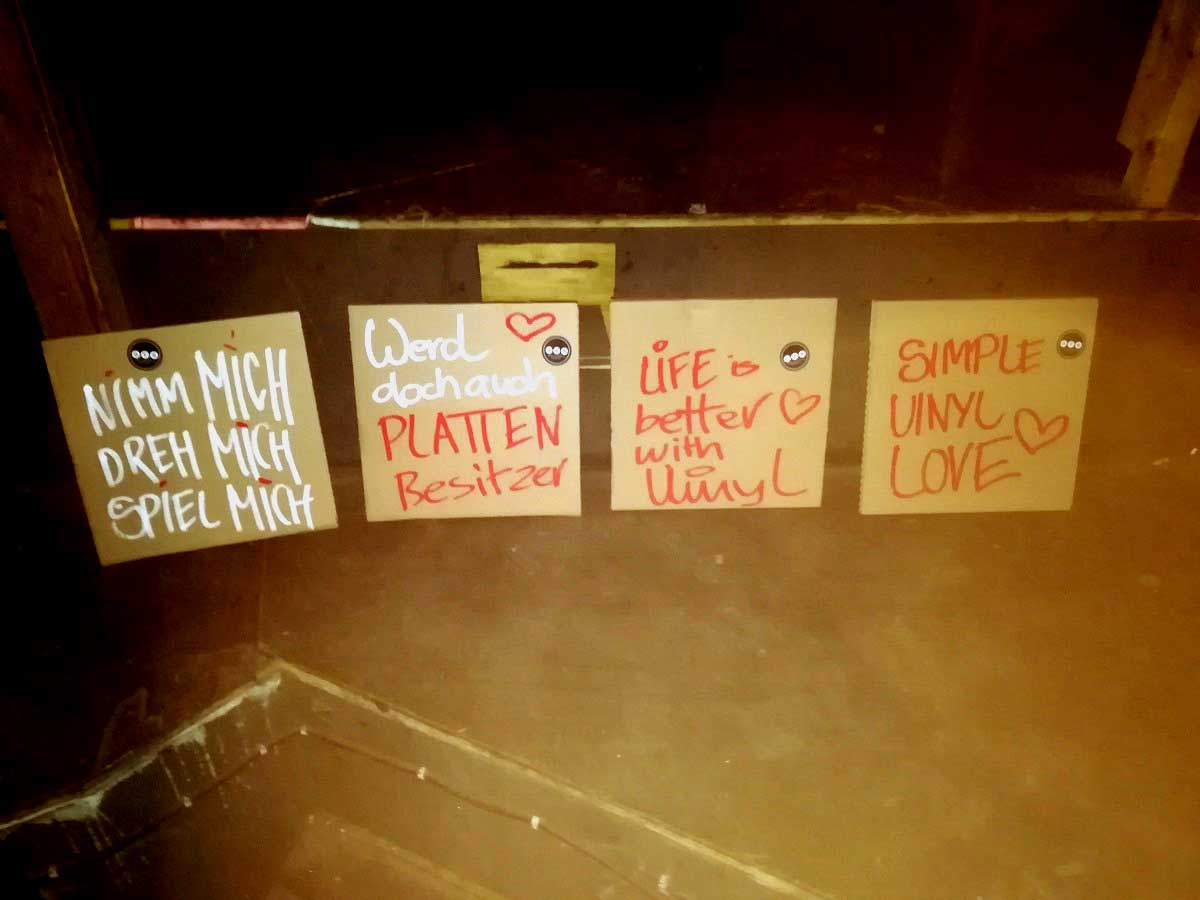 NIMM MICH
DREH MICH
SPIEL MICH
Werd
doch auch
PLATTEN
Besitzer
LIFE is
better
with
Vinyl
SIMPLE
VINYL
LOVE